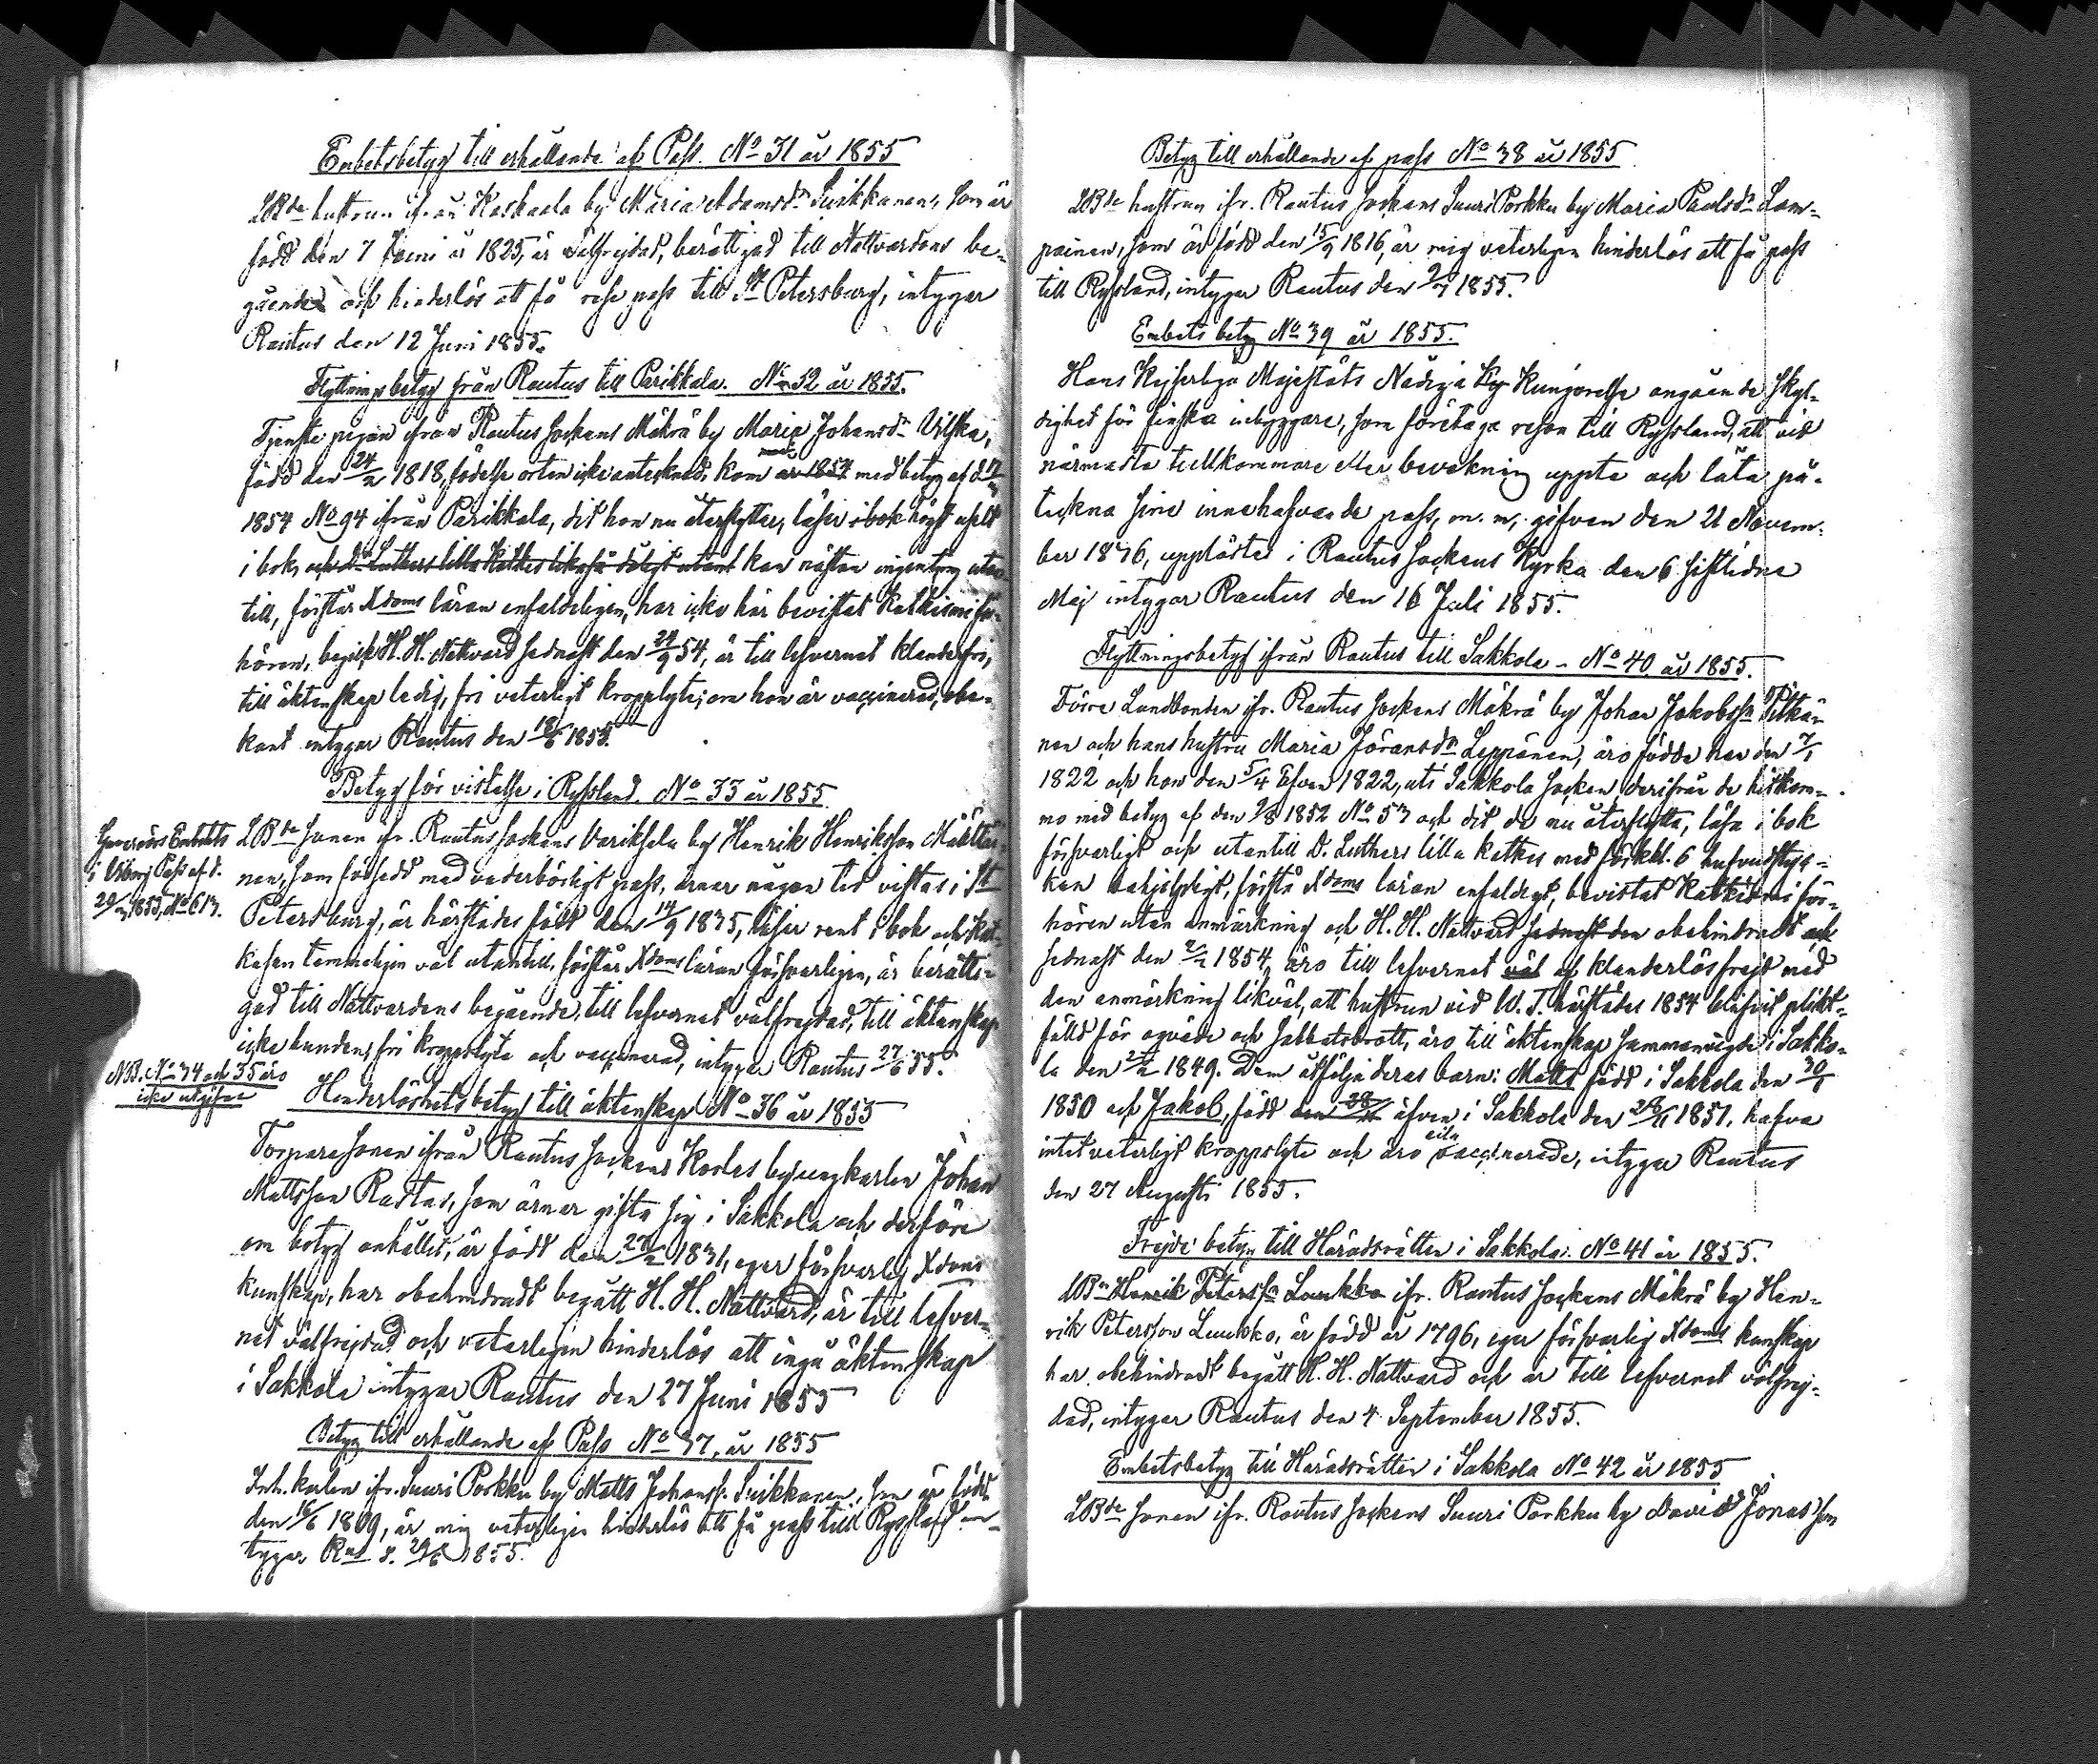 Embetsbetyg till erhållande af Pass. No 31 år 1855
LBde hustrun ifrån Kaskaala by Maria Adamsdr Suikkanen, som är
född den 7 Juni år 1825, är välfrejdad, berättigad till Nattvardens be-
gående och hinderlös att få rese pass till St Petersburg, intygar
Rautus den 12 Juni 1855.
Flyttningsbetyg från Rautus till Parikkala. No 32 år 1855.
Tjenste pigan ifrån Rautus sockens Mäkrä by Maria Johansdr Vilska,
född den 24/2 1818, födelse orten icke antecknad, kom år 1854 med betyg af d. 17
1854 No 94 ifrån Parikkala, dit hon nu återflyttar, läser i bok högst uselt
i bok, och Dr Luthers lilla Kathes likaså dåligt utant kan nästan ingenting utan
till, förstår Xdoms läran enfaldeligen, har icke här bevistat Katkismi för-
hören, begick H. H. Nattvard sednast den 24/9 54, är till lefvernet klanderfri,
till äktenskap ledig, fri veterligt kroppslyte; om hon är vaccinerad, obe-
kant intygar Rautus den 18/6 1855.
Betyg för vistelse i Ryssland. No 33 år 1855
Guvernörs Embetets
i Viborg Pass af d.
29/3 1855, No 613.
LBde sonen ifr. Rautus sockens Variksela by Henrik Henriksson Määttä-
nen, som försedd med vederbörligt pass, ärnar någon tid vistas i St
Petersburg, är härstädes född den 14/9 1835, läser rent i bok och Kat-
kesen temmeligen väl utantill, förstår Xdoms läran försvarligen, är berätti-
gad till Nattvardens begående, till lefvernet välfrejdad, till äktenskap
icke bunden, fri kroppslyte och vaccinerad, intygar Rautus 27/6 55.
NB. No 34 och 35 äro
icke utgifne
Hinderlöshets betyg till äktenskap No 36 år 1855
Torparesonen ifrån Rautus sockens Korles by ungkarlen Johan
Mattsson Rastas, som ärnar gifta sig i Sakkola och derföre
om betyg anhållit, är född den 27/2 1831, eger försvarlig Xdoms
kunskap, har obehindradt begått H. H. Nattvard, är till lefver-
net välfrejdad och veterligen hinderlös att ingå äktenskap
i Sakkola intygar Rautus den 27 Juni 1855
Betyg till erhållande af Pass No 37, år 1855
Inh. karlen ifr. Suuri Porkku by Matts Johanss. Suikkanen, som är född
den 16/6 1809, är mig veterligen hinderlös att få pass till Ryssland in-
tygar Rus d. 29/6 1855.
Betyg till erhållande af pass No 38 år 1855
LBde hustrun ifr. Rautus sockens Suuri Porkku by Maria Paulsdr Lam-
painen, som är född den 15/9 1816, är mig veterligen hinderlös att få pass
till Ryssland, intygar Rautus den 2/7 1855.
Embets betyg No 39 år 1855.
Hans Kejserliga Majestäts Nådiga Ky Kungörelse angående skyl-
dighet för finska inbyggare, som företaga resor till Ryssland, att vid
närmaste tullkammare eller bevakning uppte och låta på-
teckna sine innehafvande pass, m. m., gifven den 21 Novem-
ber 1846, upplästes i Rautus Sockens Kyrka den 6 sistledne
Maj intygar Rautus den 16 Juli 1855.
Flyttningsbetyg ifrån Rautus till Sakkola - No 40 år 1855.
Förre Landbonden ifr. Rautus sockens Mäkrä by Johan Jakobssn Pitkä-
nen och hans hustru Maria Göransdr Leppänen, äro födde han den 7/1
1822 och hon den 5/4 äfven 1822, uti Sakkola socken, derifrån de hitkom-
mo med betyg af den 9/8 1852 No 53 och dit de nu återflytta, läsa i bok
försvarligt och utantill D. Luthers lilla Kathes med förkl. 6 hufvudstyc-
ken behjelpligt, förstå Xdoms läran enfaldigt, bevistat Katkismi för-
hören utan anmärkning och H. H. Nattvard sednast den obehindradt och
sednast den 2/2 1854, äro till lefvernet väl af klanderlös frejd med
den anmärkning likväl, att hustrun vid W. T. härstädes 1854 blifvit plikt-
fälld för oqväde och sabbatsbrott, äro till äktenskap sammanvigde i Sakko-
la den 26/12 1849. Dem åtfölja deras barn: Matts född i Sakkola den 30/5
1850 och Jakob, född den 28/11 äfven i Sakkola den 28/11 1851, hafva
intet veterligt kroppslyte och äro eila vaccinerade, intygar Rautus
den 27 Augusti 1855.
Frejde betyg till Häradsrätten i Sakkola: No 41 år 1855.
LBn Henrik Peterssn Luukko ifr. Rautus sockens Mäkrä by Hen-
rik Petersson Luukko, är född år 1796, eger försvarlig Xdoms kunskap
har obehindradt begått H. H. Nattvard och är till lefvernet välfrej-
dad, intygar Rautus den 4 September 1855.
Embetsbetyg till Häradsrätten i Sakkola No 42 år 1855
LBde sonen ifr. Rautus sockens Suuri Porkku by David Jonasson